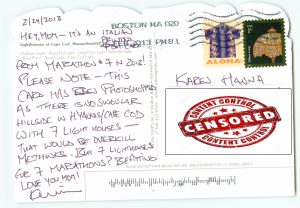 2/24/2013
HEY, MOM - IT'S AN ITALIAN
Lighthouses of Cape Cod, Massachusetts
FROM MARATHON #7 IN 2012!
PLEASE NOTE - THIS
CARD HAS BEEN PHOTOSHOPPED
AS THERE IS NO SINGULAR
HILLSIDE IN HYANNIS/CAPE COD
WITH 7 LIGHTHOUSES -
THAT WOULD BE OVERKILL
METHINKS. BUT 7 LIGHTHOUSES
FOR 7 MARATHONS?
LOVE YOU, MOM!
BOSTON MA 020
2013 PM 8 L
ALOHA
KAREN HANNA
CONTENT CONTROL
CENSORED
CONTENT CONTROL